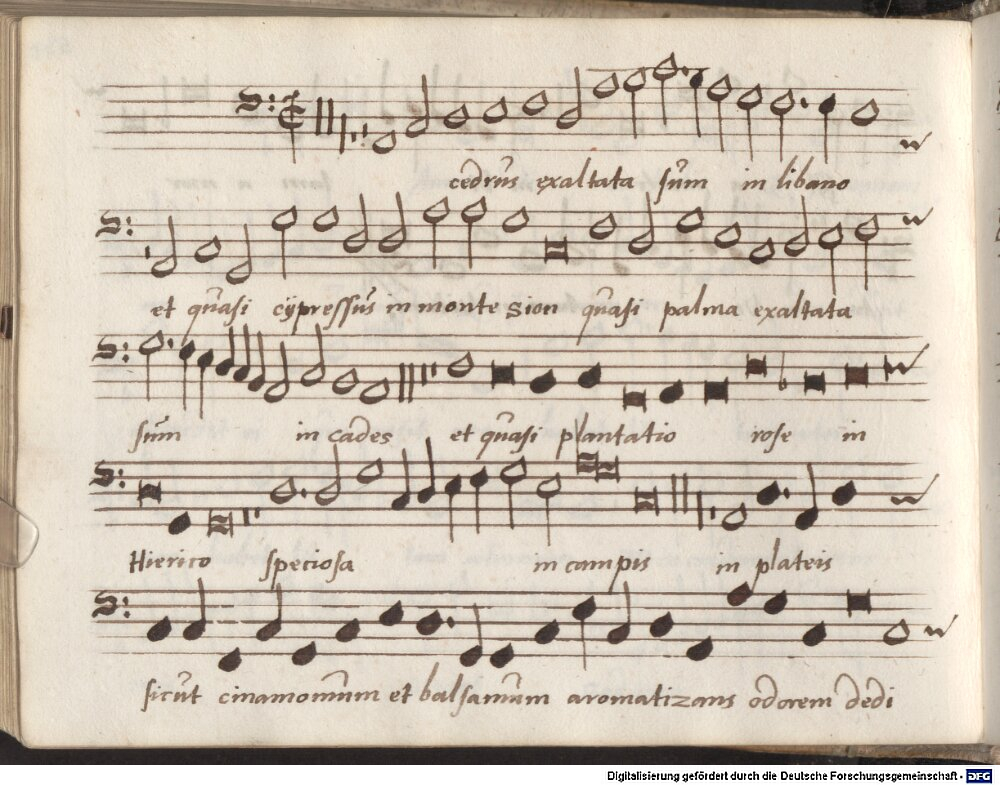 cedrus exaltata sum in libano
et quasi cÿpressus in monte sion quasi palma exaltata
sum in cades et quasi plantatio rose in
Hierico speciosa in campis in plateis
sicut cinamomum et balsamum aromatizans odorem dedi
Digitalisierung gefördert durch die Deutsche Forschungsgemeinschaft - DFG